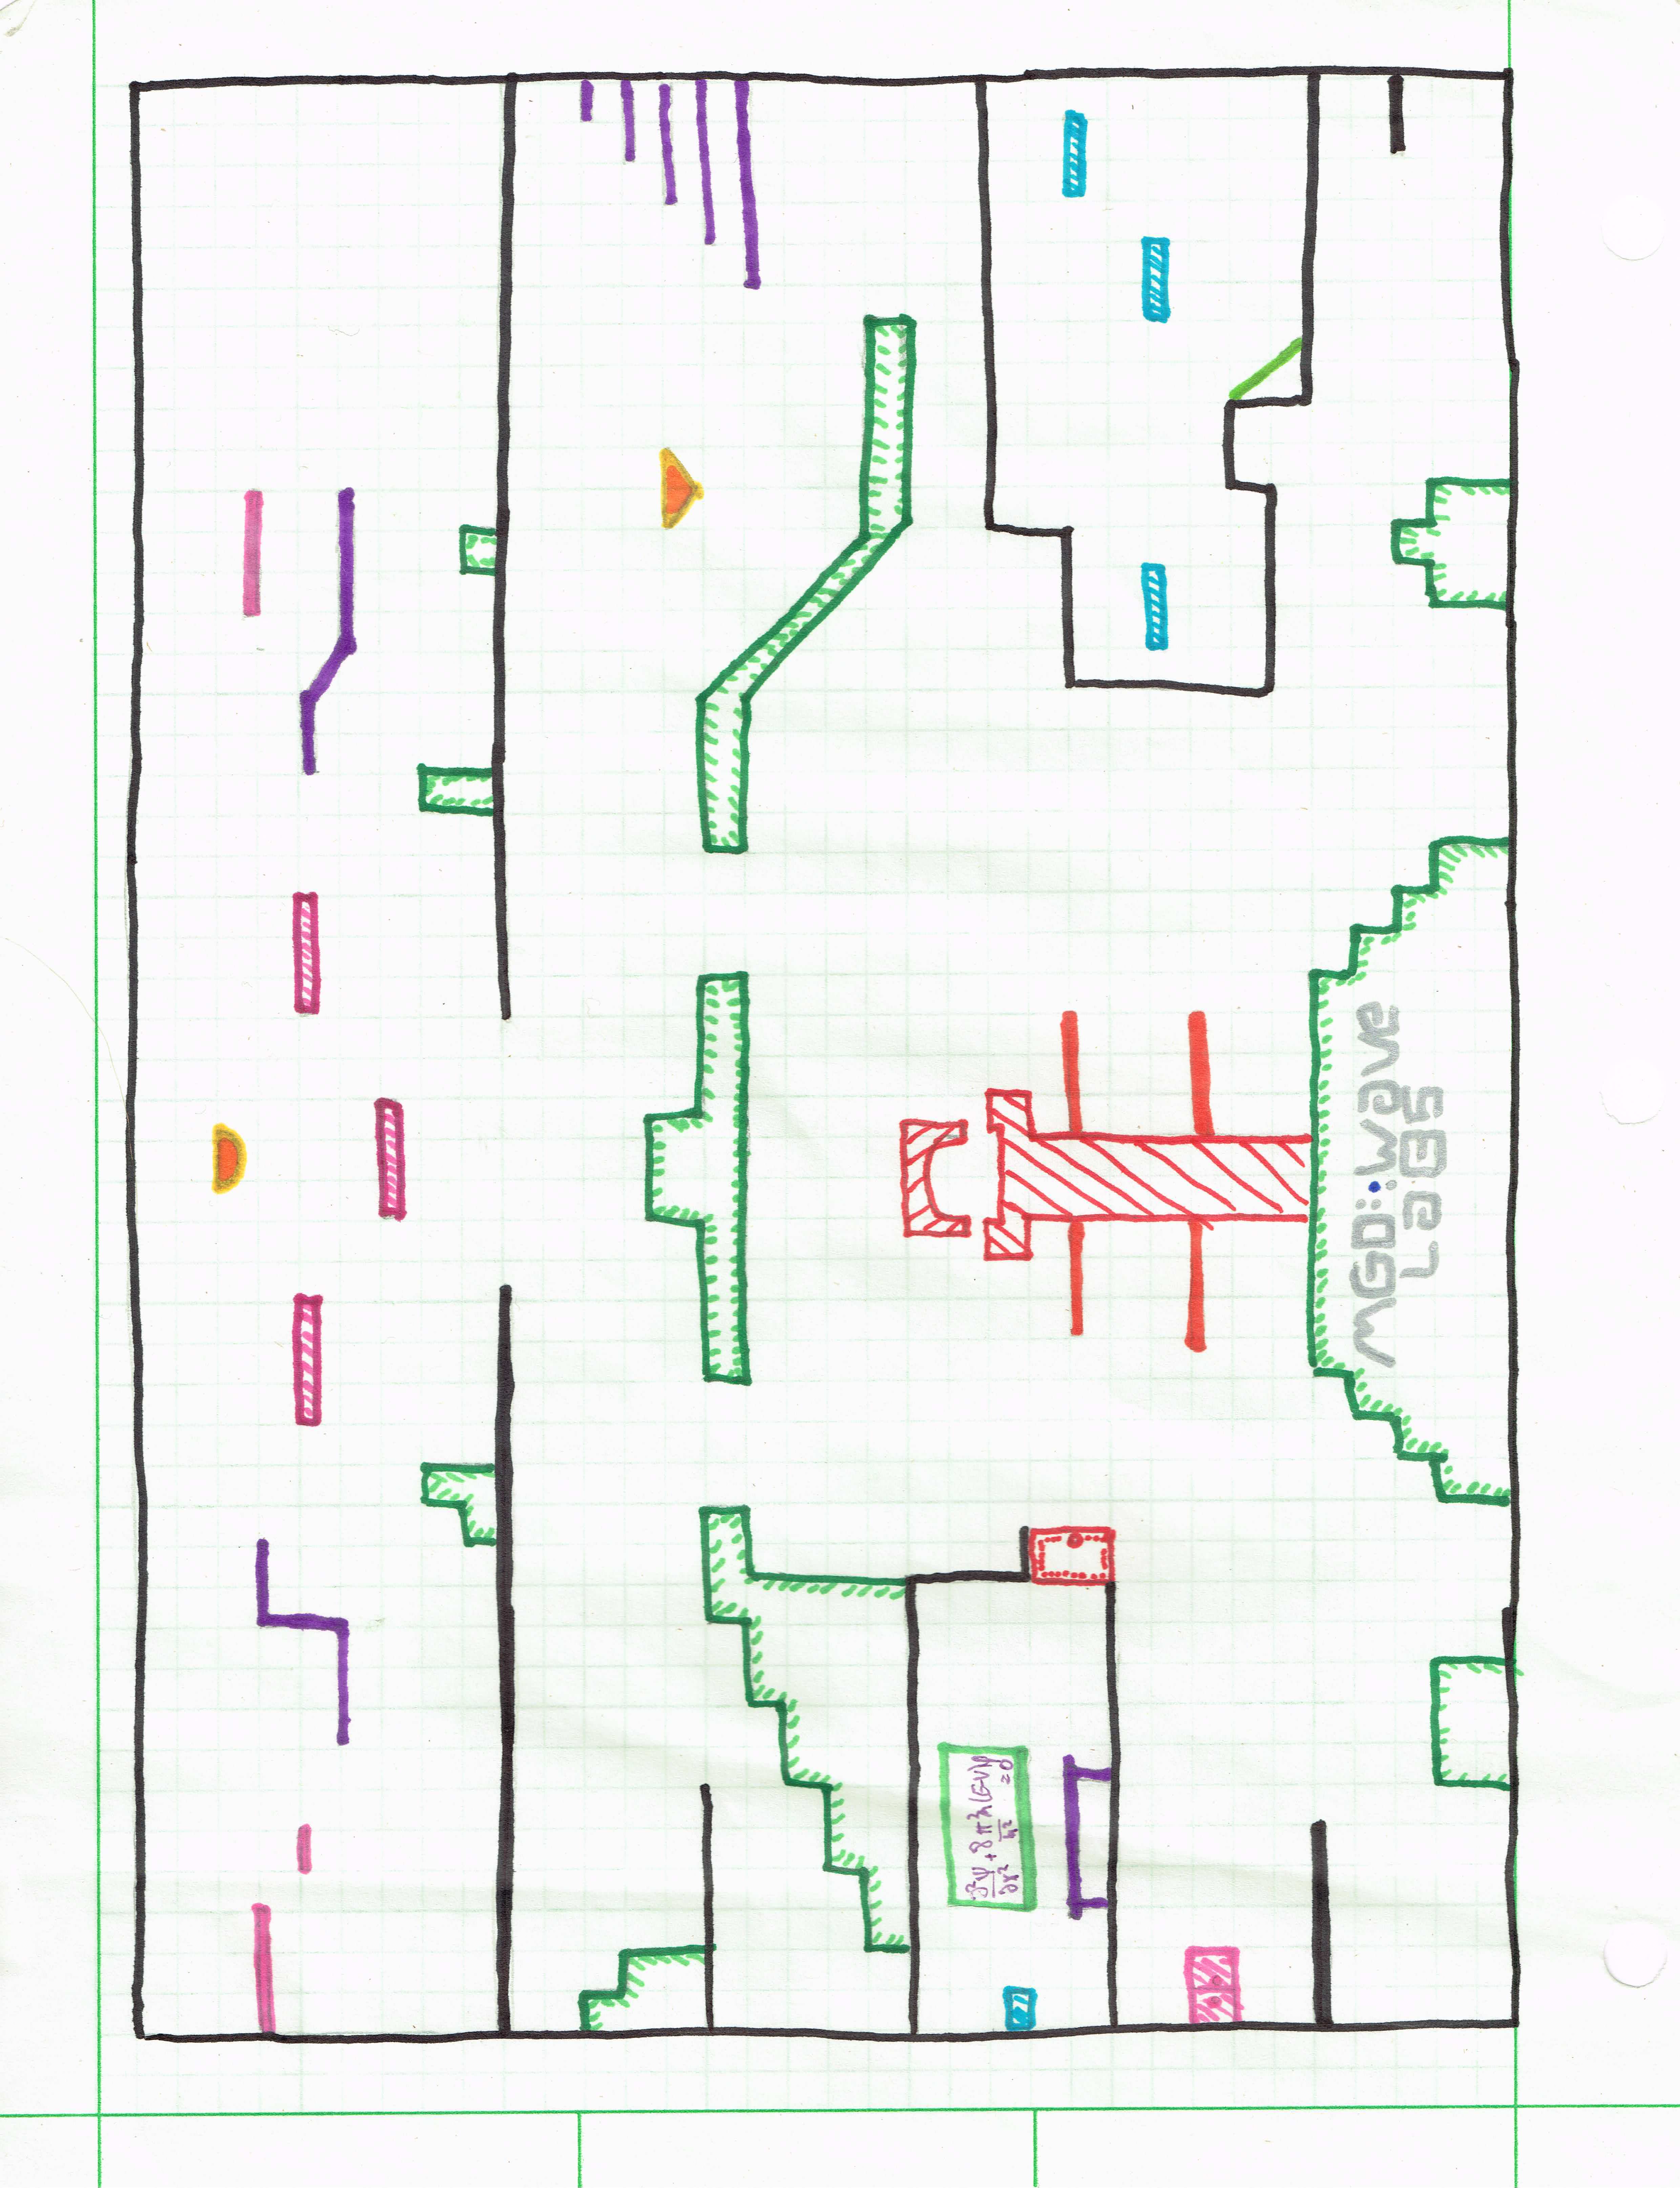 MGD::Wave
LaB5
∂²ψ/∂x² + 8π²m/h² (E-V)ψ
=0